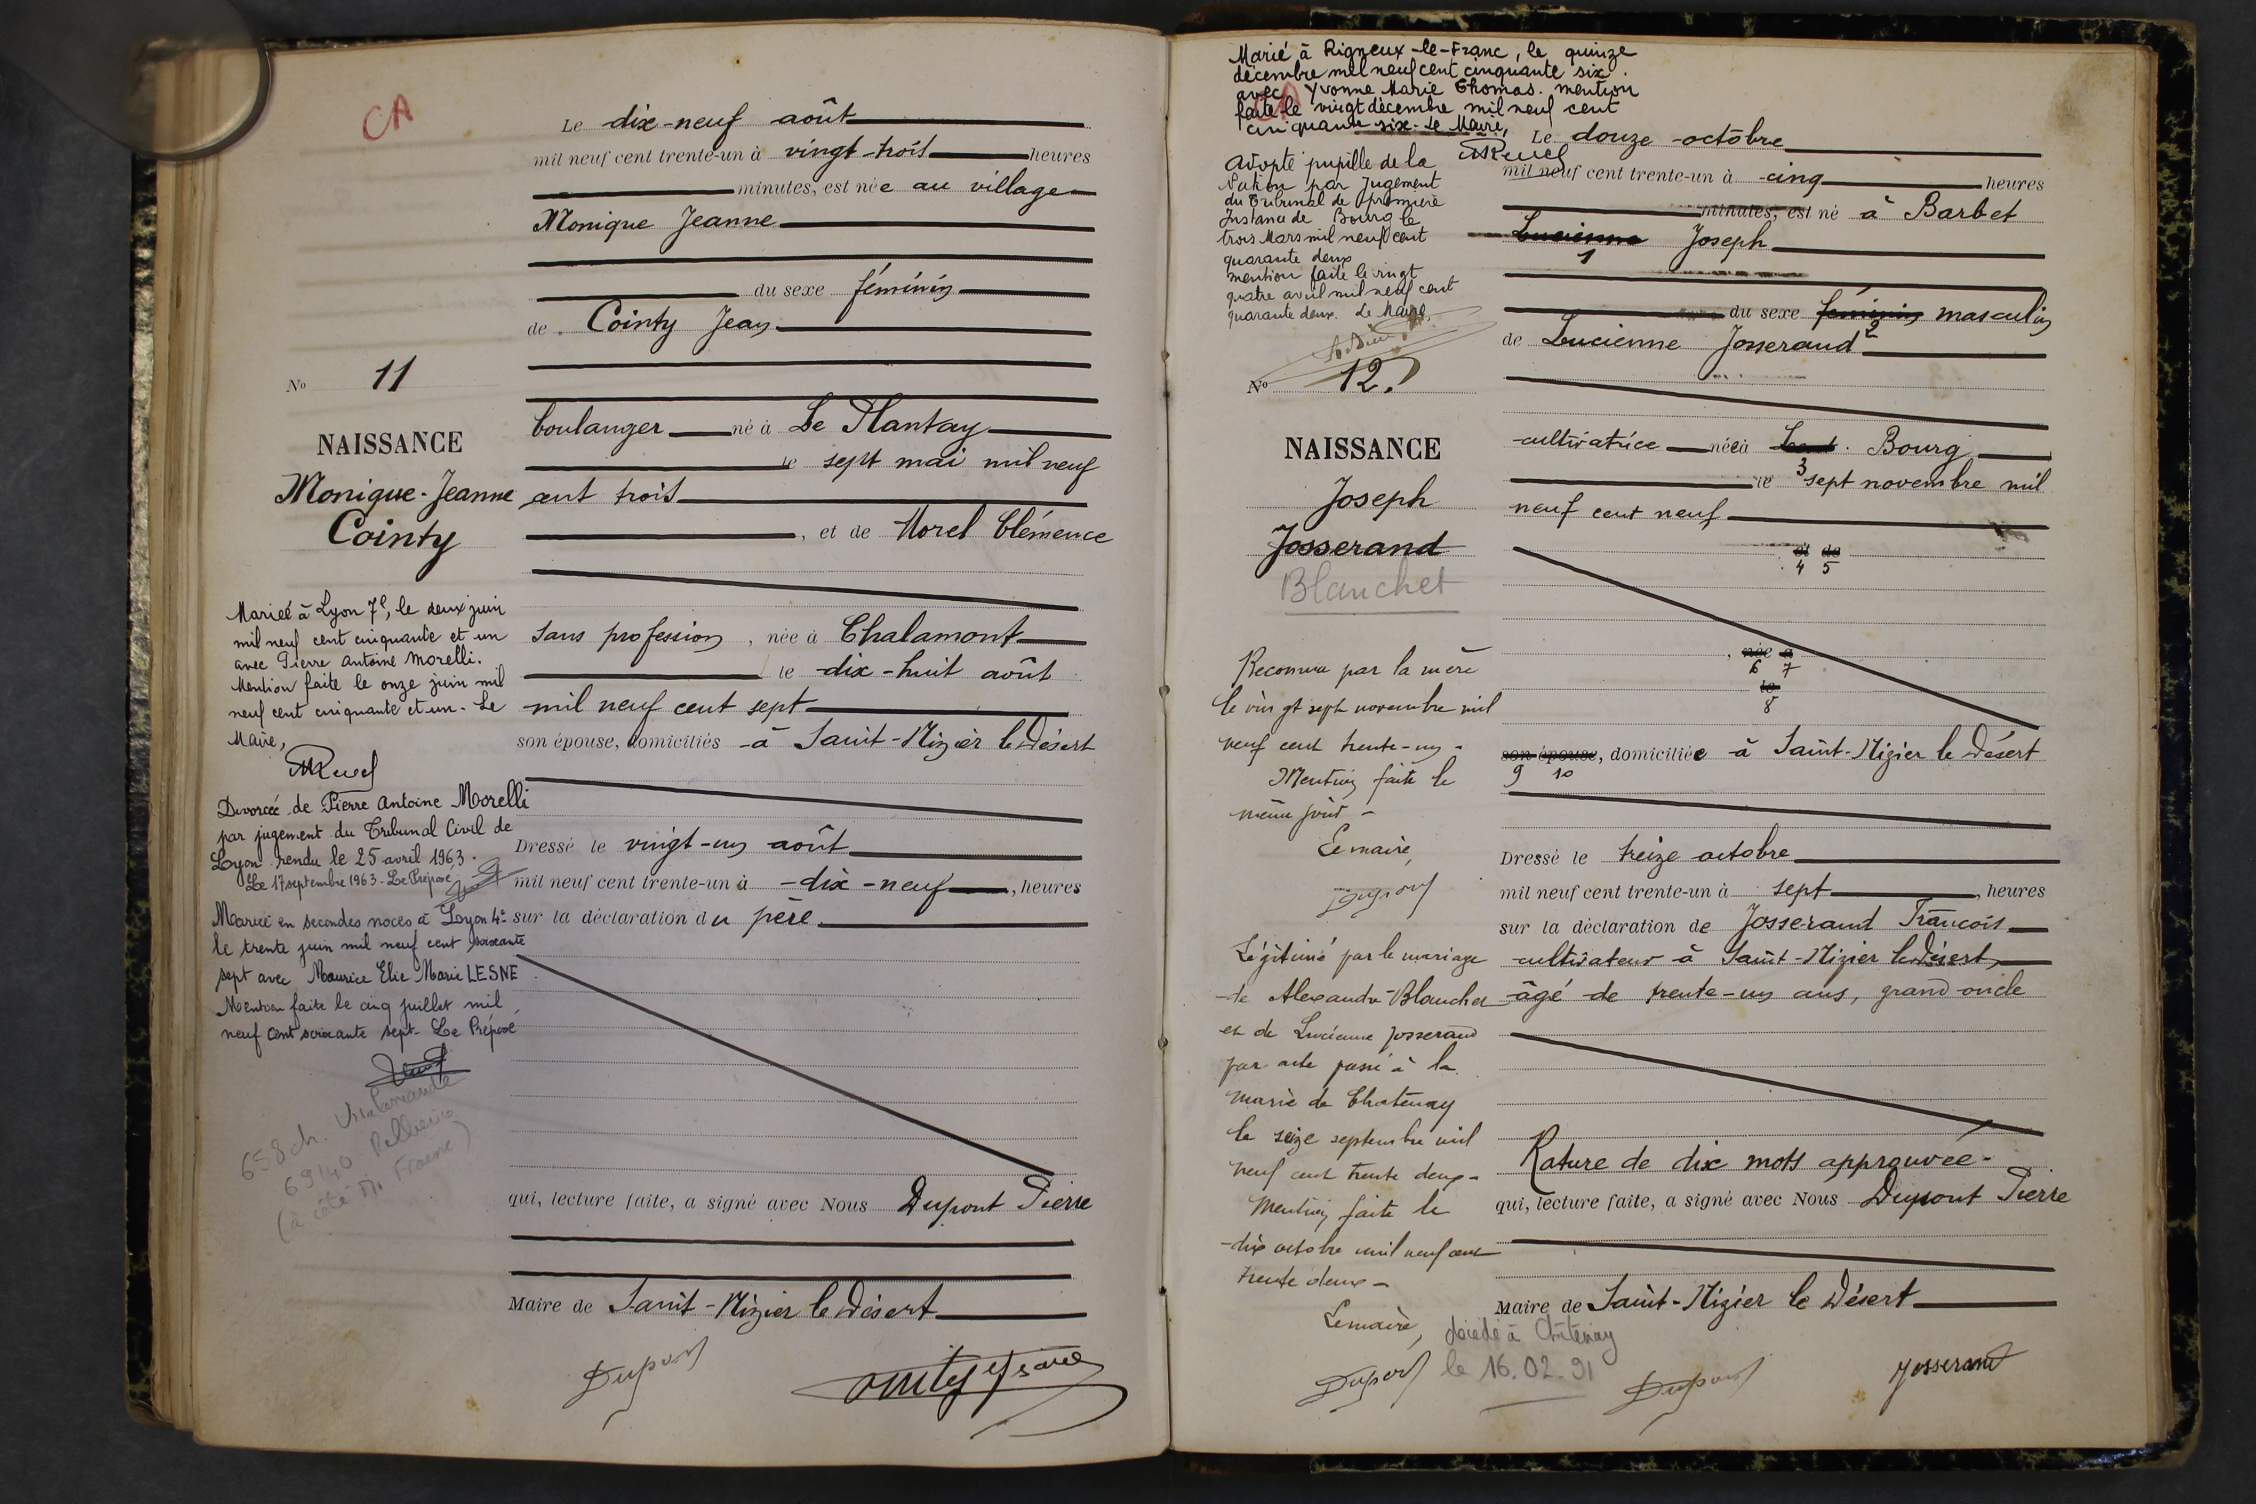 CA
Le dix-neuf août
mil neuf cent trente-un à vingt-trois heures
minutes, est née au village
Monique Jeanne
du sexe féminin
de Cointy Jean
No 11
boulanger né à Le Plantay
le sept mai mil neuf
cent trois
, et de Morel Clémence
sans profession, née à Chalamont
le dix-huit août
mil neuf cent sept
son épouse, domiciliés à Saint-Nizier le Désert
Dressé le vingt-un août
mil neuf cent trente-un à dix-neuf, heures
sur la déclaration du père
qui, lecture faite, a signé avec Nous Dupont Pierre
Maire de Saint-Nizier le Désert
Dupont
NAISSANCE
Monique-Jeanne
Cointy
Mariée à Lyon 7e, le deux juin
mil neuf cent cinquante et un
avec Pierre Antoine Morelli.
Mention faite le onze juin mil
neuf cent cinquante et un - Le
Maire,
Divorcée de Pierre Antoine Morelli
par jugement du Tribunal Civil de
Lyon rendu le 25 avril 1963.
Le 17 septembre 1963 - Le Préposé
Mariée en secondes noces à Lyon 4e
le trente juin mil neuf cent soixante
sept avec Maurice Elie Marie LESNE
Mention faite le cinq juillet mil
neuf cent soixante sept - Le Préposé
658 ch.
69140
(à côté
Marié à Rigneux-le-Franc, le quinze
décembre mil neuf cent cinquante six.
avec Yvonne Marie Thomas. mention
faite le vingt décembre mil neuf cent
cinquante six - Le Maire,
CA
Adopté pupille de la
Nation par Jugement
du Tribunal de première
Instance de Bourg le
trois Mars mil neuf cent
quarante deux
mention faite le vingt
quatre avril mil neuf cent
quarante deux. Le Maire,
No 12.
NAISSANCE
Joseph
Josserand
Blanchet
Reconnu par la mère
le vingt sept novembre mil
neuf cent trente-un -
Mention faite le
même jour -
Le maire,
Dupont
Légitimé par le mariage
de Alexandre Blanchet
et de Lucienne Josserand
par acte passé à la
mairie de Chatenay
le seize septembre mil
neuf cent trente deux -
Mention faite le
dix octobre mil neuf cent
trente deux -
Le maire,
Dupont
décédé à Châtenay
le 16.02.91
Le douze octobre
mil neuf cent trente-un à cinq heures
minutes, est né à Barbet
Lucienne Joseph
1
du sexe féminin masculin
2
de Lucienne Josserand
cultivatrice née à Bourg
3
le sept novembre mil
neuf cent neuf
et de
4 5
, née à
6 7
le
8
son épouse, domiciliée à Saint-Nizier le Désert
9 10
Dressé le treize octobre
mil neuf cent trente-un à sept, heures
sur la déclaration de Josserand François
cultivateur à Saint-Nizier le Désert,
âgé de trente-un ans, grand oncle
Rature de dix mots approuvée -
qui, lecture faite, a signé avec Nous Dupont Pierre
Maire de Saint-Nizier le Désert
Dupont
Josserand